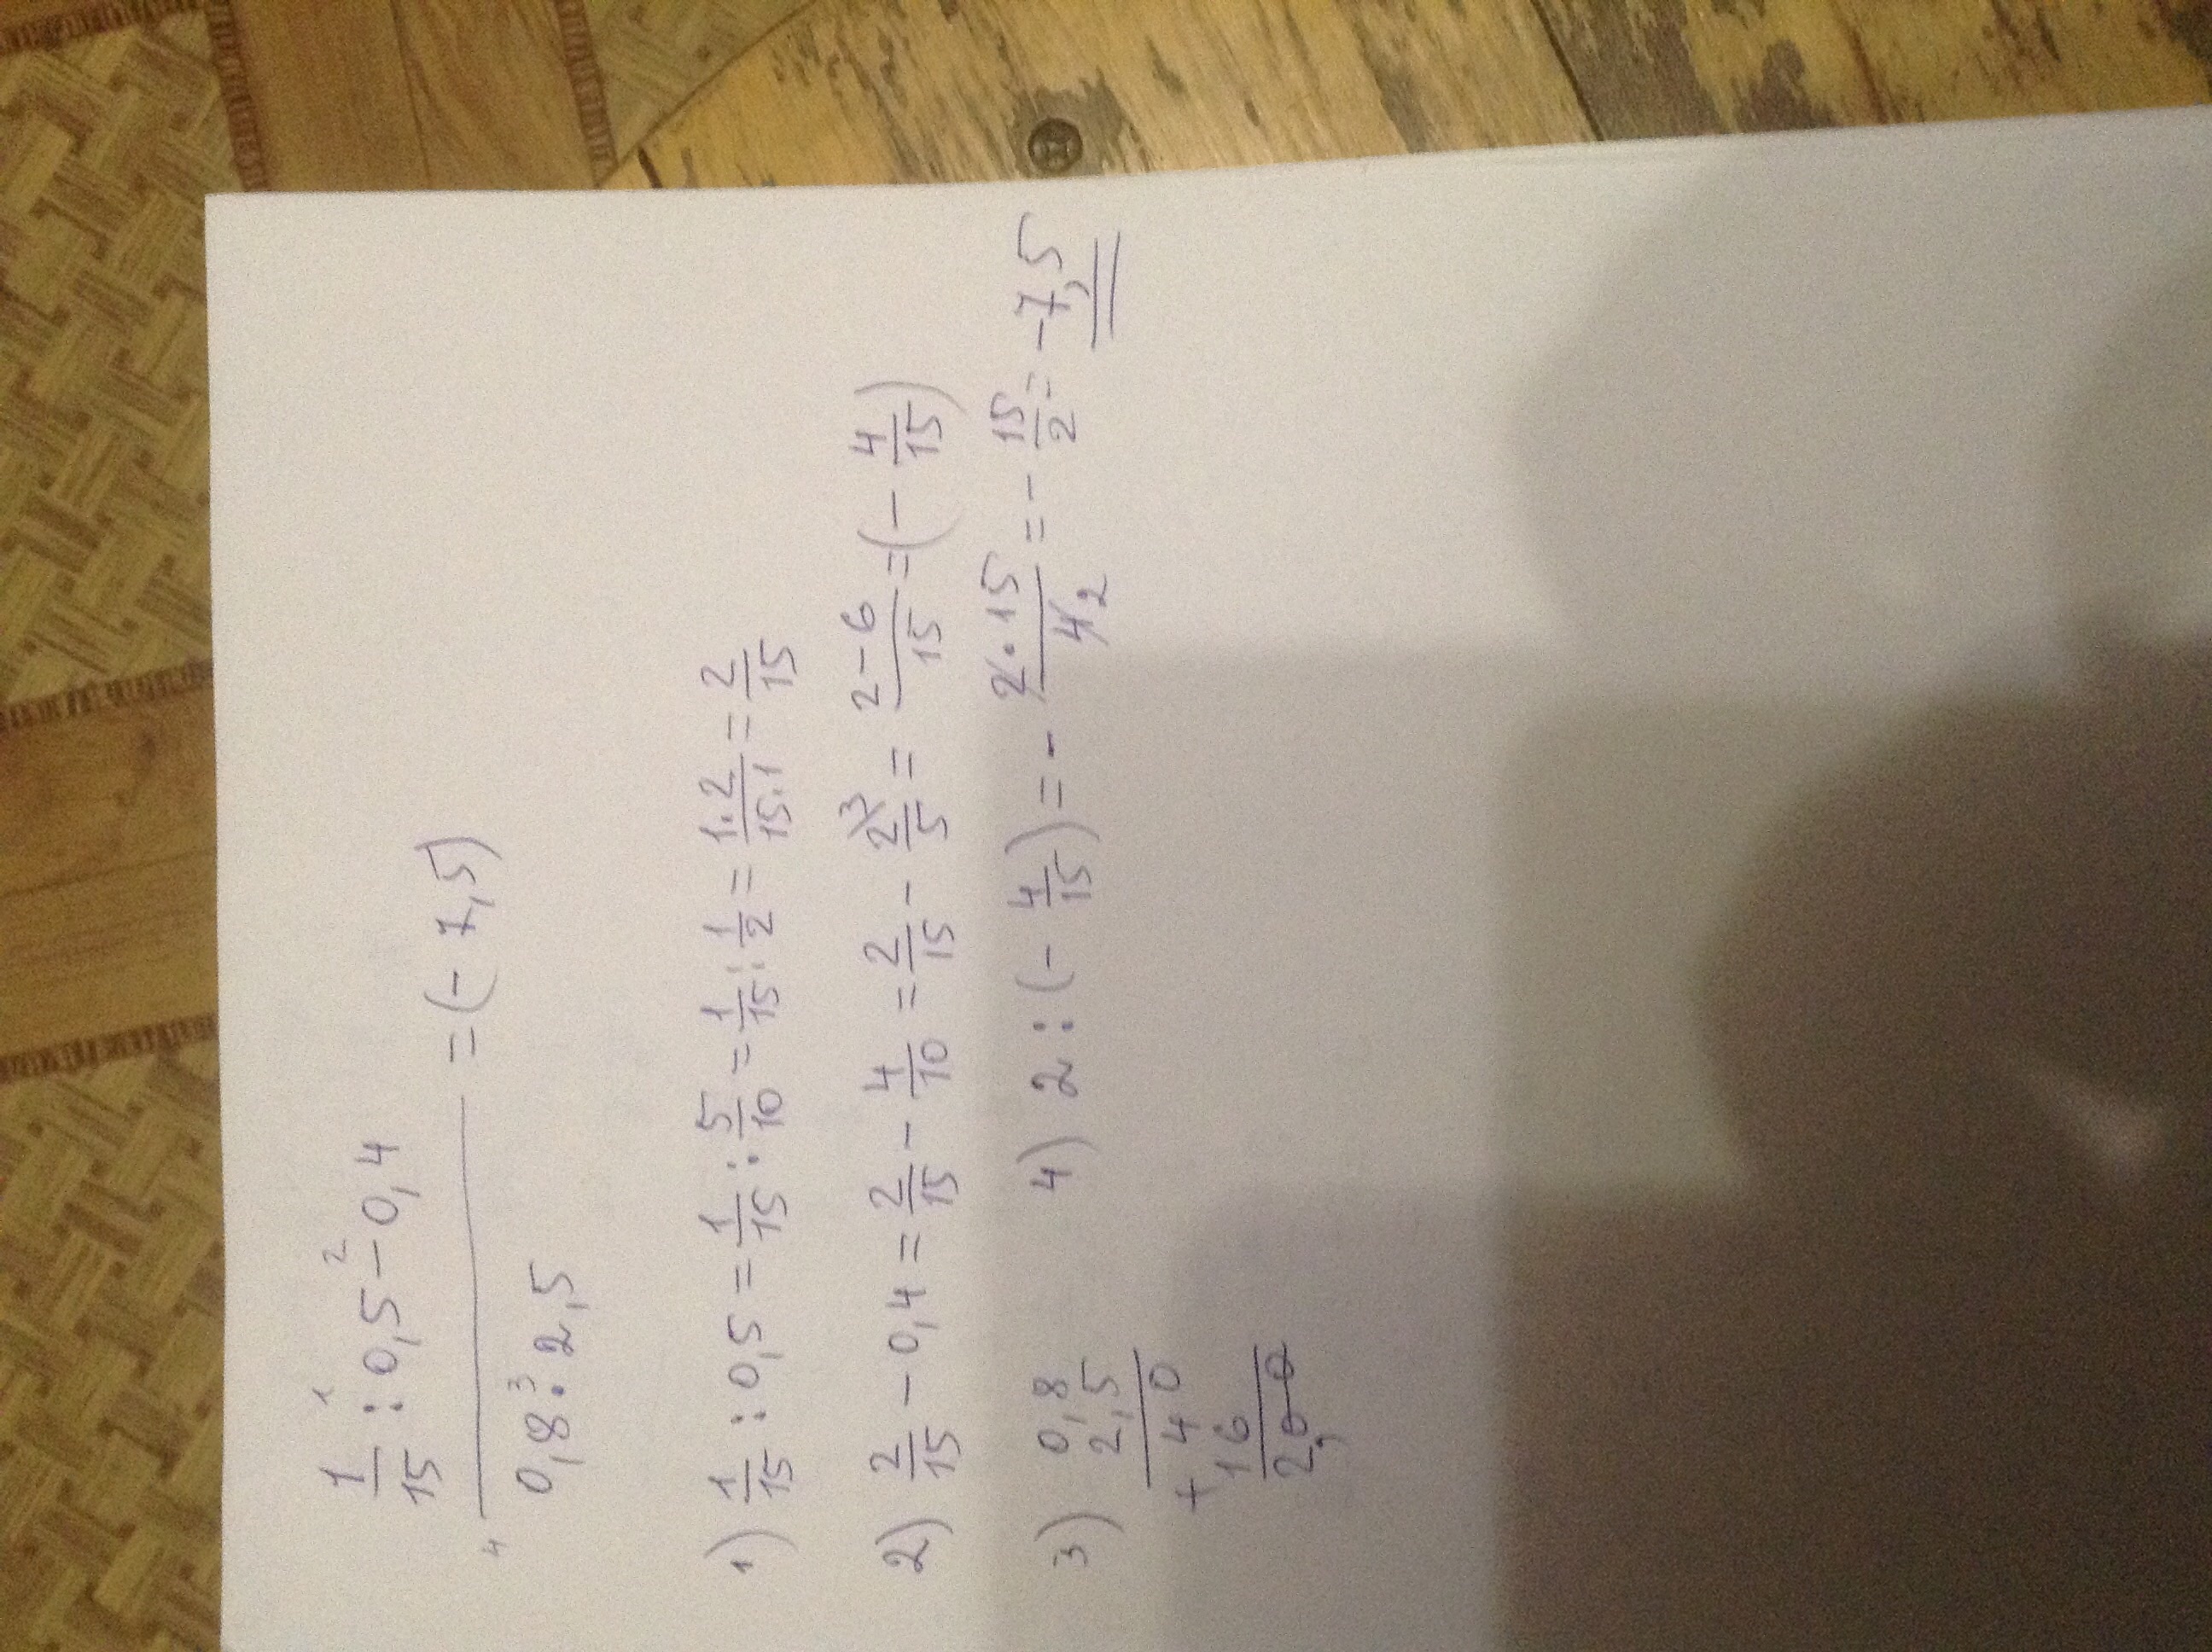 1/15 :¹ 0,5 -² 0,4
4 ――― = (- 7,5)
0,8 ·³ 2,5
1) 1/15 : 0,5 = 1/15 : 5/10 = 1/15 : 1/2 = 1·2/15·1 = 2/15
2) 2/15 - 0,4 = 2/15 - 4/10 = 2/15 - 2\3/5 = 2-6/15 = (- 4/15)
3) 0,8
2,5
40
+
16
2,00
4) 2 : (- 4/15) = - 2·15/4 2 = - 15/2 = -7,5